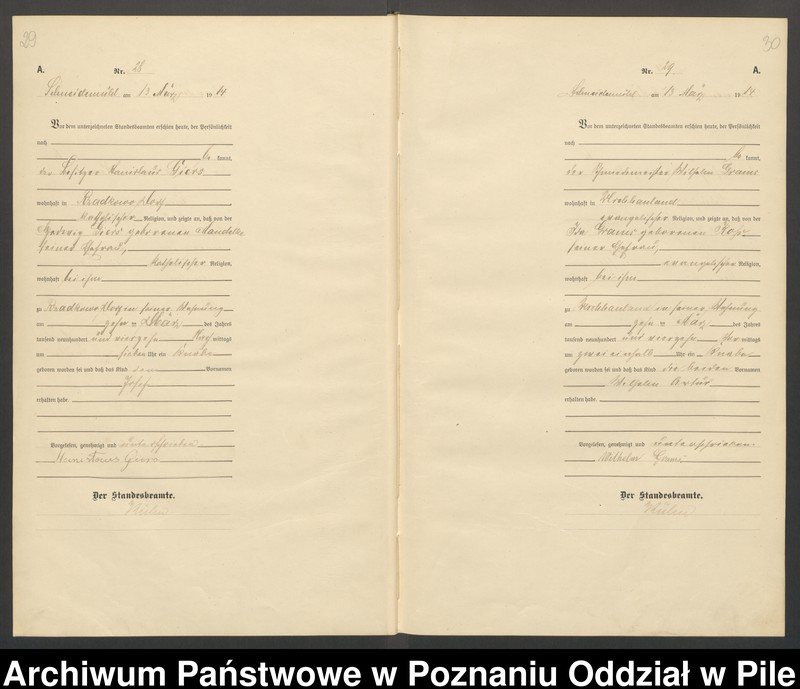 29
A.
Nr. 28
Schneidemühl am 13 März 1914
Vor dem unterzeichneten Standesbeamten erschien heute, der Persönlichkeit
nach
be kannt,
der Besitzer Stanislaus Giers
wohnhaft in
katholischer Religion, und zeigte an, daß von der
Hedwig Giers geborenen
seiner Ehefrau,
katholischer Religion,
wohnhaft bei ihm
zu in seiner Wohnung
am zehn ten März des Jahres
tausend neunhundert und vierzehn Nach mittags
um sieben Uhr ein Knabe
geboren worden sei und daß das Kind den Vornamen
Josef
erhalten habe
Vorgelesen, genehmigt und unterschrieben
Stanislaus Giers
Der Standesbeamte.
30
Nr. 29
A.
Schneidemühl am 13 März 1914
Vor dem unterzeichneten Standesbeamten erschien heute, der Persönlichkeit
nach
be kannt,
der Schmiedemeister Wilhelm Grams
wohnhaft in
evangelischer Religion, und zeigte an, daß von der
Grams geborenen
seiner Ehefrau,
evangelischer Religion,
wohnhaft bei ihm
zu in seiner Wohnung
am zehn ten März des Jahres
tausend neunhundert und vierzehn Vor mittags
um einhalb Uhr ein Knabe
geboren worden sei und daß das Kind die beiden Vornamen
Wilhelm Artur
erhalten habe
Vorgelesen, genehmigt und unterschrieben
Wilhelm Grams
Der Standesbeamte.
Archiwum Państwowe w Poznaniu Oddział w Pile